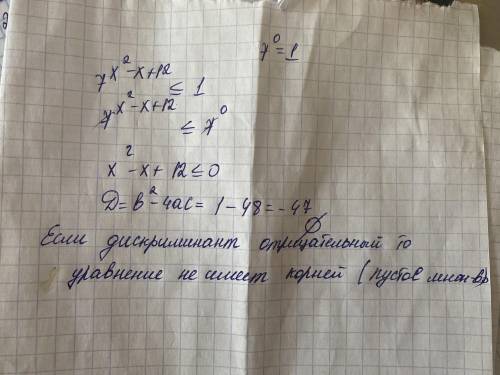 7⁰ = 1
7^(x² - x + 12) ≤ 1
7^(x² - x + 12) ≤ 7⁰
x² - x + 12 ≤ 0
D = b² - 4ac = 1 - 48 = - 47
∅
Если дискриминант отрицательный то
уравнение не имеет корней (пустое мнж-во)